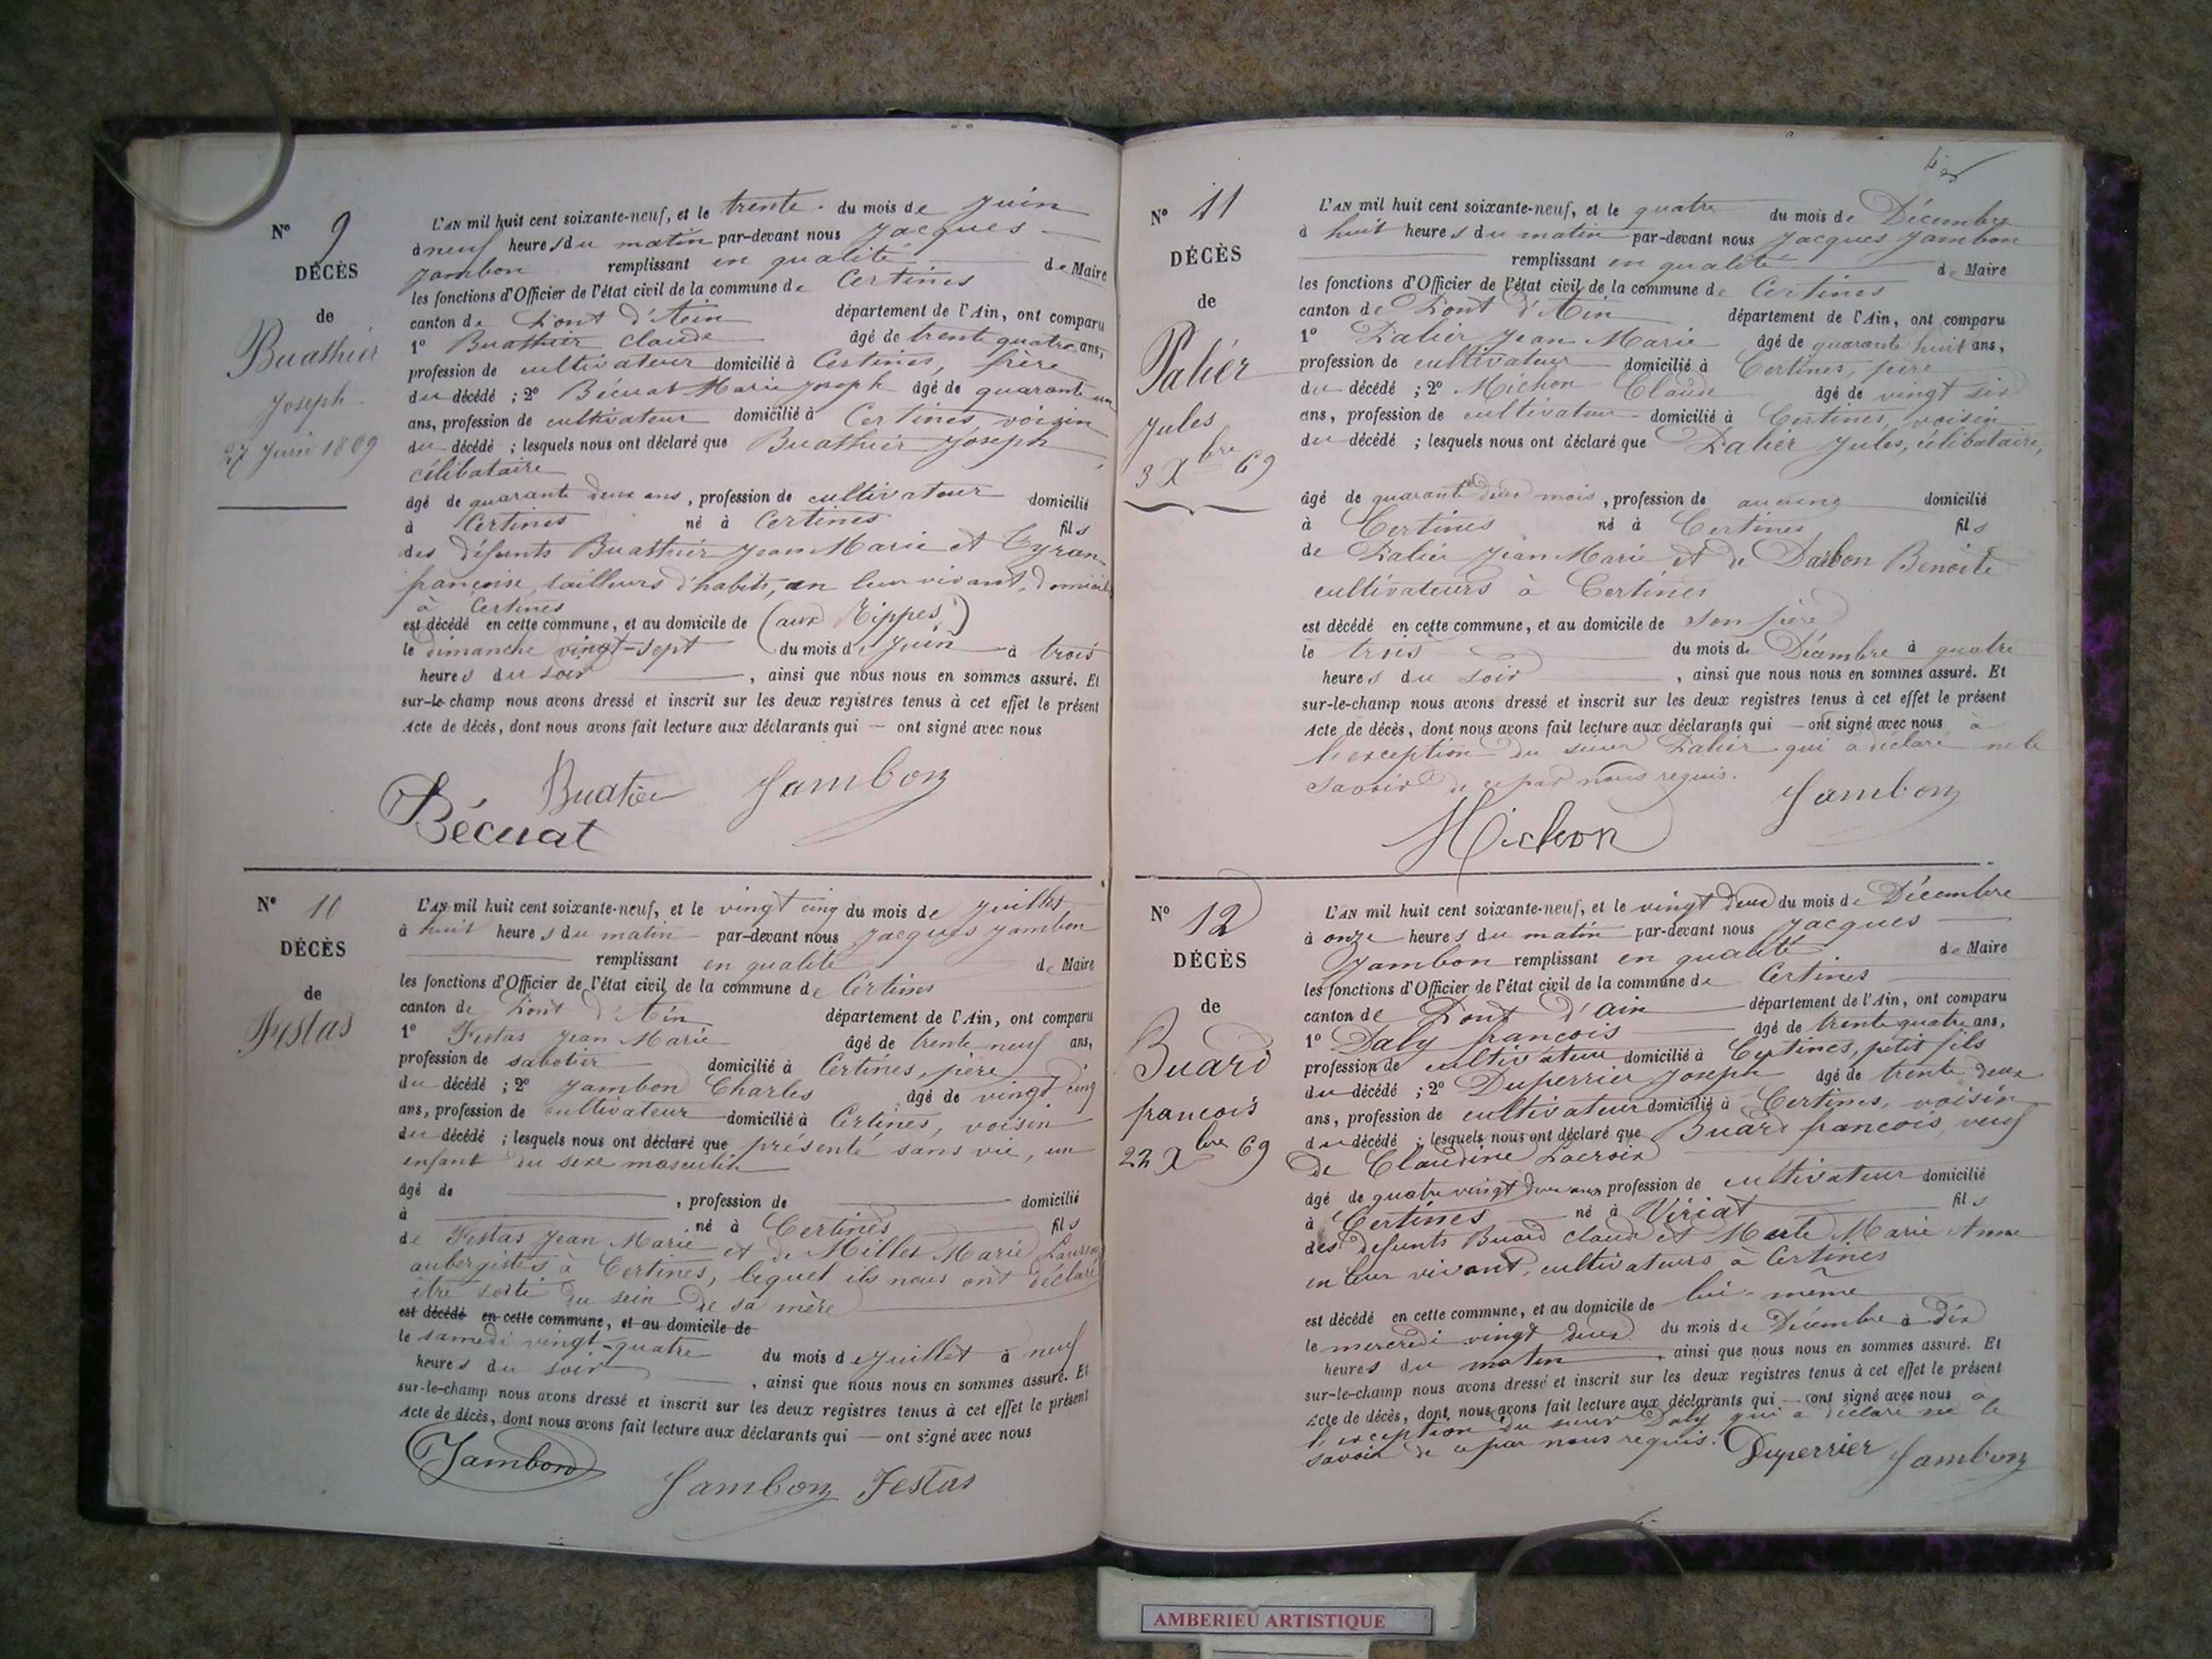 N° 9
DÉCÈS
de
Buathier
Joseph
27 Juin 1869
L'AN mil huit cent soixante-neuf, et le trente du mois de Juin
à neuf heures du matin par-devant nous Jacques
Jambon remplissant en qualité de Maire
les fonctions d'Officier de l'état civil de la commune de Certines
canton de Pont d'Ain département de l'Ain, ont comparu
1° Buathier Claude âgé de trente quatre ans,
profession de cultivateur domicilié à Certines, frère
du décédé ; 2° Bécuat Marie Joseph âgé de quarante un
ans, profession de cultivateur domicilié à Certines, voisin
du décédé ; lesquels nous ont déclaré que Buathier Joseph,
célibataire
âgé de quarante deux ans, profession de cultivateur domicilié
à Certines né à Certines fils
des défunts Buathier Jean Marie et
françoise, tailleurs d'habits, en leur vivant, domiciliés
à Certines
est décédé en cette commune, et au domicile de (aux Rippes)
le dimanche vingt-sept du mois de Juin à trois
heures du soir, ainsi que nous nous en sommes assuré. Et
sur-le-champ nous avons dressé et inscrit sur les deux registres tenus à cet effet le présent
Acte de décès, dont nous avons fait lecture aux déclarants qui — ont signé avec nous
Buatier Jambon
Bécuat
N° 10
DÉCÈS
de
Festas
L'AN mil huit cent soixante-neuf, et le vingt cinq du mois de Juillet
à huit heures du matin par-devant nous Jacques Jambon
remplissant en qualité de Maire
les fonctions d'Officier de l'état civil de la commune de Certines
canton de Pont d'Ain département de l'Ain, ont comparu
1° Festas Jean Marie âgé de trente neuf ans,
profession de sabotier domicilié à Certines, père
du décédé ; 2° Jambon Charles âgé de vingt cinq
ans, profession de cultivateur domicilié à Certines, voisin
du décédé ; lesquels nous ont déclaré que présenté sans vie, un
enfant du sexe masculin
âgé de , profession de domicilié
à né à Certines fils
de Festas Jean Marie et de Millet Marie
aubergistes à Certines, lequel ils nous ont déclaré
être sorti du sein de sa mère
est décédé en cette commune, et au domicile de
le samedi vingt-quatre du mois de Juillet à neuf
heures du soir, ainsi que nous nous en sommes assuré. Et
sur-le-champ nous avons dressé et inscrit sur les deux registres tenus à cet effet le présent
Acte de décès, dont nous avons fait lecture aux déclarants qui — ont signé avec nous
Jambon Jambon Festas
N° 11
DÉCÈS
de
Palier
Jules
3 Xbre 69
L'AN mil huit cent soixante-neuf, et le quatre du mois de Décembre
à huit heures du matin par-devant nous Jacques Jambon
remplissant en qualité de Maire
les fonctions d'Officier de l'état civil de la commune de Certines
canton de Pont d'Ain département de l'Ain, ont comparu
1° Palier Jean Marie âgé de quarante huit ans,
profession de cultivateur domicilié à Certines, père
du décédé ; 2° Michon Claude âgé de vingt six
ans, profession de cultivateur domicilié à Certines, voisin
du décédé ; lesquels nous ont déclaré que Palier Jules, célibataire,
âgé de quarante deux mois, profession de aucune domicilié
à Certines né à Certines fils
de Palier Jean Marie et de Darbon Benoite
cultivateurs à Certines
est décédé en cette commune, et au domicile de son père
le trois du mois de Décembre à quatre
heures du soir, ainsi que nous nous en sommes assuré. Et
sur-le-champ nous avons dressé et inscrit sur les deux registres tenus à cet effet le présent
Acte de décès, dont nous avons fait lecture aux déclarants qui — ont signé avec nous à
l'exception du sieur Palier qui a déclaré ne le
savoir de ce par nous requis. Jambon
Michon
N° 12
DÉCÈS
de
Buard
françois
22 Xbre 69
L'AN mil huit cent soixante-neuf, et le vingt deux du mois de Décembre
à onze heures du matin par-devant nous Jacques
Jambon remplissant en qualité de Maire
les fonctions d'Officier de l'état civil de la commune de Certines
canton de Pont d'ain département de l'Ain, ont comparu
1° Daly françois âgé de trente quatre ans,
profession de cultivateur domicilié à Certines, petit fils
du décédé ; 2° Duperrier Joseph âgé de trente deux
ans, profession de cultivateur domicilié à Certines, voisin
du décédé ; lesquels nous ont déclaré que Buard françois, veuf
de Claudine Lacroix
âgé de quatre vingt deux ans, profession de cultivateur domicilié
à Certines né à Viriat fils
des défunts Buard Claude et Merle Marie Anne
en leur vivant, cultivateurs à Certines
est décédé en cette commune, et au domicile de lui-même
le mercredi vingt deux du mois de Décembre à dix
heures du matin, ainsi que nous nous en sommes assuré. Et
sur-le-champ nous avons dressé et inscrit sur les deux registres tenus à cet effet le présent
Acte de décès, dont nous avons fait lecture aux déclarants qui — ont signé avec nous à
l'exception du sieur Daly qui a déclaré ne le
savoir de ce par nous requis. Duperrier Jambon
AMBERIEU ARTISTIQUE